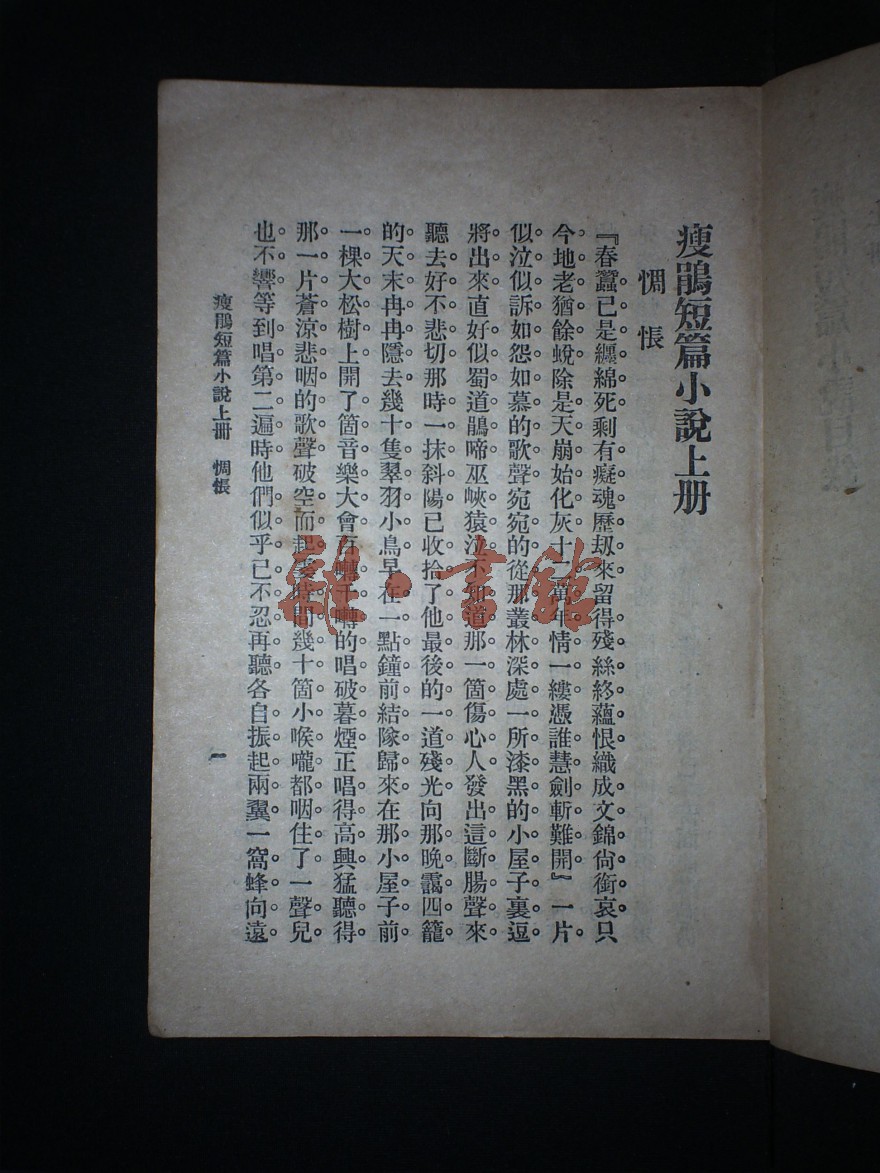 瘦鵑短篇小說上册
惆悵
『春蠶已是纏綿死剩有癡魂歷刼來留得殘絲終蘊恨織成文錦尙銜哀只
今地老猶餘蛻除是天崩始化灰十二萬年情一縷憑誰慧劍斬難開』一片
似泣似訴如怨如慕的歌聲宛宛的從那叢林深處一所漆黑的小屋子裏逗
將出來直好似蜀道鵑啼巫峽猿泣不知道那一箇傷心人發出這斷腸聲來
聽去好不悲切那時一抹斜陽已收拾了他最後的一道殘光向那晚靄四籠
的天末冉冉隱去幾十隻翠羽小鳥早在一點鐘前結隊歸來在那小屋子前
一棵大松樹上開了箇音樂大會百囀千囀的唱破暮煙正唱得高興猛聽得
那一片蒼涼悲咽的歌聲破空而起霎時間幾十箇小喉嚨都咽住了一聲兒
也不響等到唱第二遍時他們似乎已不忍再聽各自振起兩翼一窩蜂向遠
瘦鵑短篇小說上册 惆悵
一
雜·書館